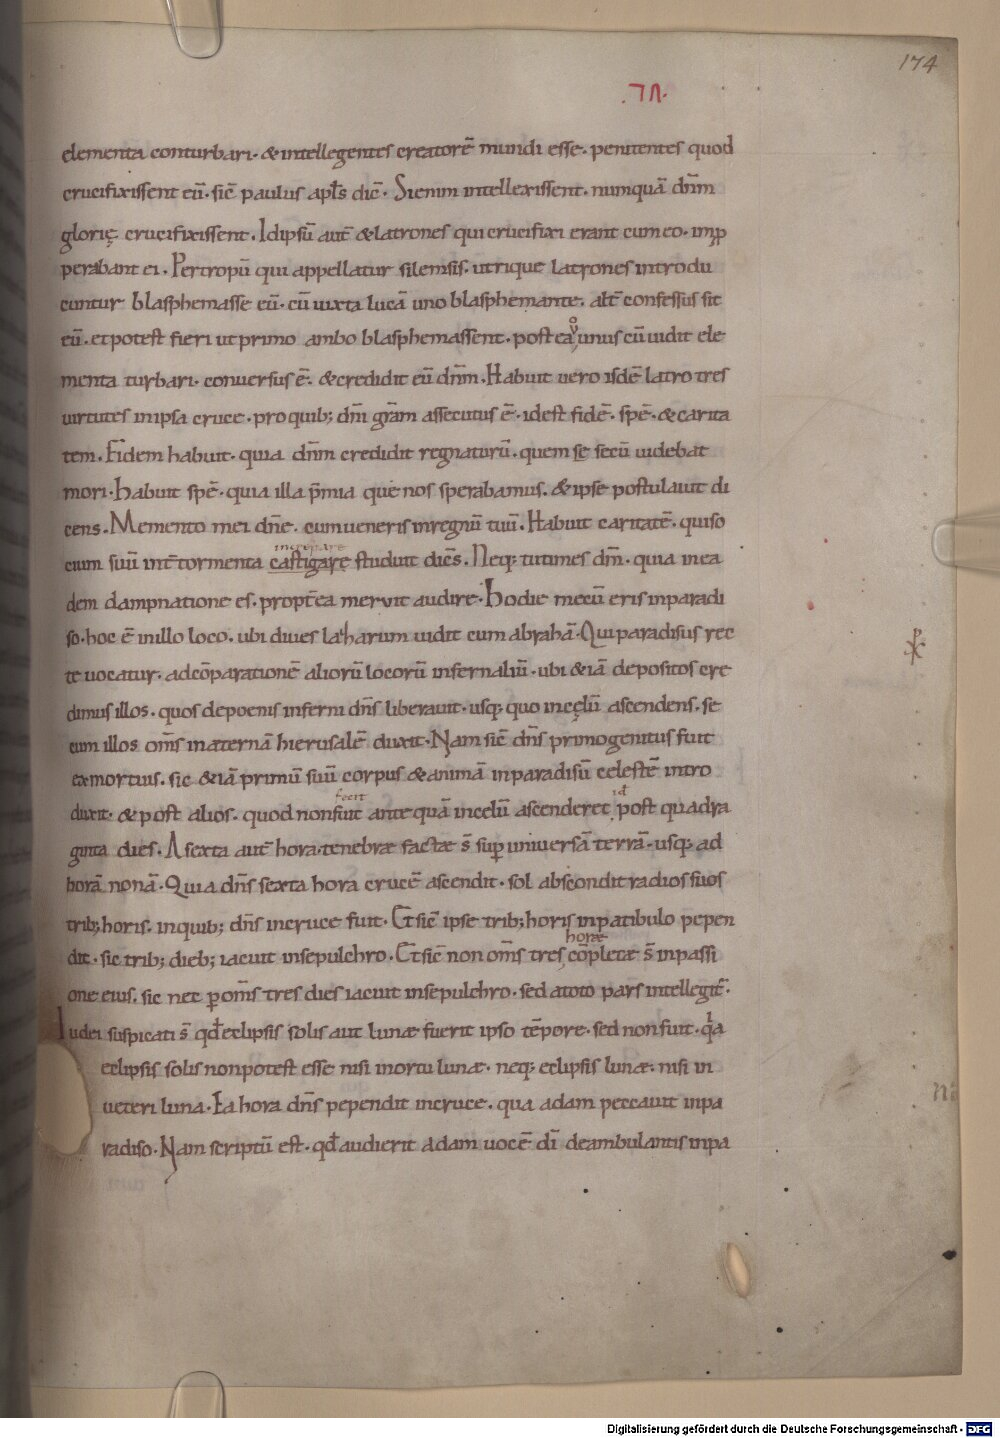 174
.VII.
elementa conturbari· & intellegentes creatorē mundi esse· penitentes quod
crucifixissent eū· sic̄ paulus apl̄s dic̄· Si enim intellexissent· numquā dn̄m
glorię crucifixissent· Idipsū aut̄ & latrones qui crucifixi erant cum eo· imp̲
perabant ei· Per tropū qui appellatur silemsis· utrique latrones introdu
cuntur blasphemasse eū· cū iuxta lucā uno blasphemante· alt̄ confessus sit
eū· et potest fieri ut primo ambo blasphemassent· postea ů unus cū uidit ele
menta turbari· conuersus ē· & credidit eū dn̄m· Habuit uero isdē latro tres
uirtutes in ipsa cruce· pro quib; dn̄i gr̄am assecutus ē· id est fidē· spē· & carita
tem· Fidem habuit· quia dn̄m credidit regnaturū· quem se secū uidebat
mori· habuit spē· quia illa p̄mia que nos sperabamus· & ipse postulauit di
cens· Memento mei dn̄e· cum ueneris in regnū tuū· Habuit caritatē· qui so
increpare
cium suū int̄ tormenta castigare studuit dicēs· Neq; tu times dm̄· quia in ea
dem dampnatione es· propt̄ea meruit audire· Hodie mecū eris in paradi
so· hoc ē in illo loco· ubi diues lazharum uidit cum abrahā· Qui paradisus rec
te uocatur· ad cōparationē aliorū locorū infernaliū· ubi & iā depositos cre
dimus illos· quos de poenis inferni dn̄s liberauit· usq; quo in cęlū ascendens· se
cum illos om̄s in aternā hierusalē duxit· Nam sic̄ dn̄s primogenitus fuit
ex mortuis· sic & iā primū suū corpus & animā in paradisū celestē intro
fecit id̄
duxit· & post alios· quod non fuit ante quā in celū ascenderet post quadra
ginta dies· A sexta aut̄ hora tenebræ factæ s̄ sup̲ uniuersā terrā· usq; ad
horā nonā· Quia dn̄s sexta hora crucē ascendit· sol abscondit radios suos
trib; horis· in quib; dn̄s in cruce fuit· Et sic̄ ipse trib; horis in patibulo pepen
horæ
dit· sic trib; dieb; iacuit in sepulchro· Et sic̄ non om̄s tres cōpletæ s̄ in passi
one eius· sic nec p̲ om̄s tres dies iacuit in sepulchro· sed a toto pars intellegit̄·
Iudei suspicati s̄ qd̄ eclipsis solis aut lunæ fuerit ipso tēpore· sed non fuit· qa
eclipsis solis non potest esse nisi in ortu lunæ· neq; eclipsis lunæ· nisi in
ueteri luna· Ea hora dn̄s pependit in cruce· qua adam peccauit in pa
radiso· Nam scriptū est· qd̄ audierit adam uocē dī deambulantis in pa
Digitalisierung gefördert durch die Deutsche Forschungsgemeinschaft - DFG